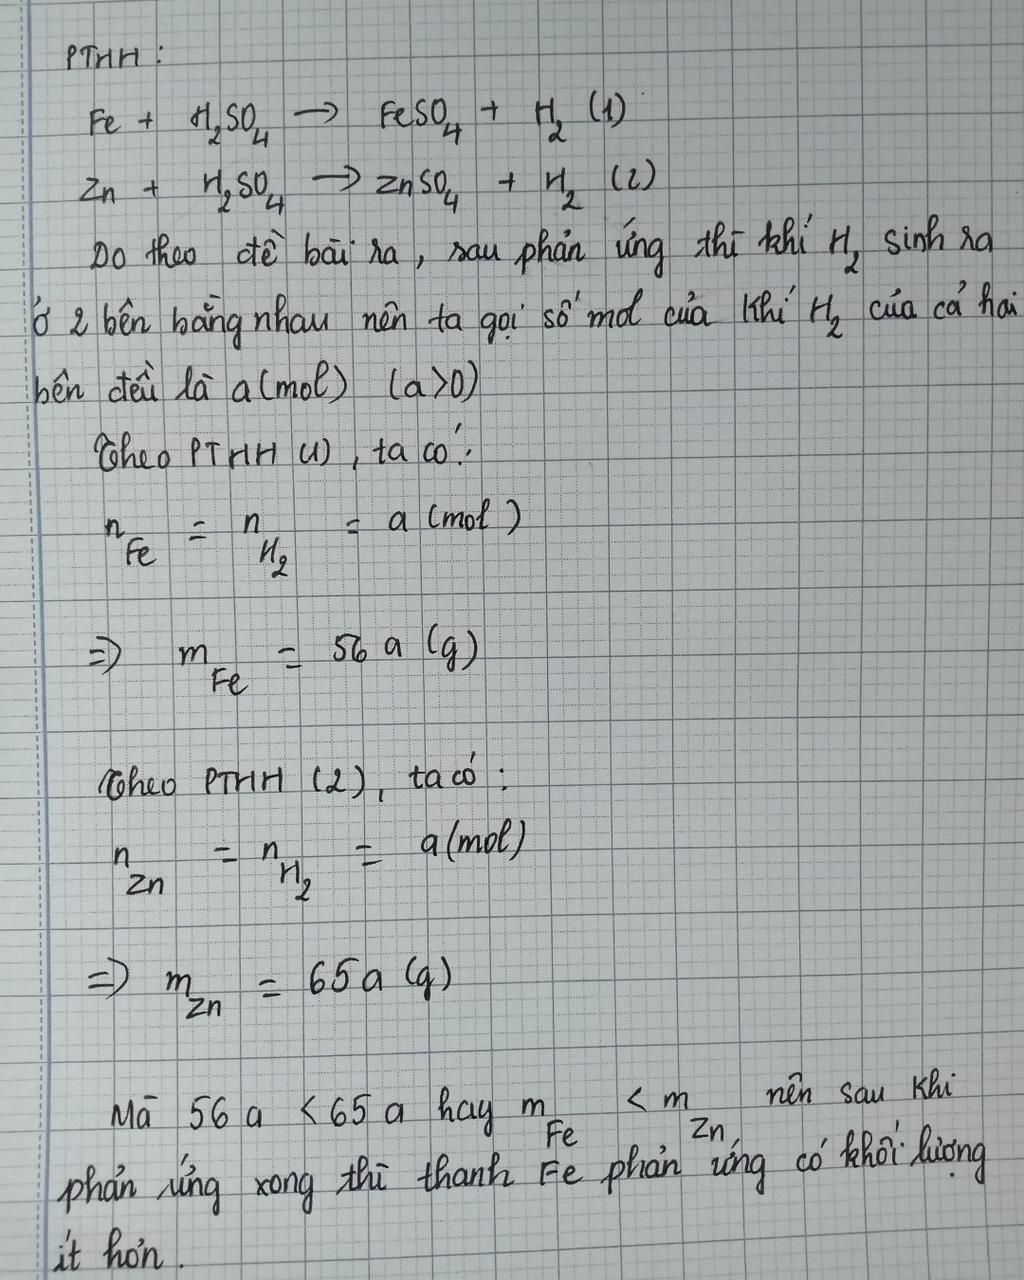 PTHH :
Fe + H₂SO₄ → FeSO₄ + H₂ (1)
Zn + H₂SO₄ → ZnSO₄ + H₂ (2)
Do theo đề bài ra, sau phản ứng thì khí H₂ sinh ra
ở 2 bên bằng nhau nên ta gọi số mol của khí H₂ của cả hai
bên đều là a (mol) (a>0)
Theo PTHH (1), ta có :
n_Fe = n_H₂ = a (mol)
=> m_Fe = 56 a (g)
Theo PTHH (2), ta có :
n_Zn = n_H₂ = a (mol)
=> m_Zn = 65 a (g)
Mà 56 a < 65 a hay m_Fe < m_Zn nên sau khi
phản ứng xong thì thanh Fe phản ứng có khối lượng
ít hơn.